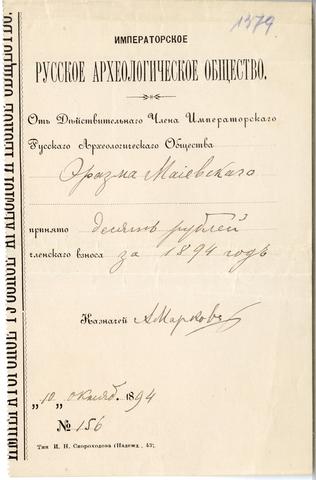 1579
ИМПЕРАТОРСКОЕ
РУССКОЕ АРХЕОЛОГИЧЕСКОЕ ОБЩЕСТВО.
Отъ Дѣйствительнаго Члена Императорскаго
Русскаго Археологическаго Общества
Эразма Маіевскаго
принято десять рублей
членскаго взноса за 1894 годъ
Казначей АМарковъ
„10„ октября 1894
№ 156
Тип. И. Н. Скороходова (Надежд., 43).
ИМПЕРАТОРСКОЕ РУССКОЕ АРХЕОЛОГИЧЕСКОЕ ОБЩЕСТВО.